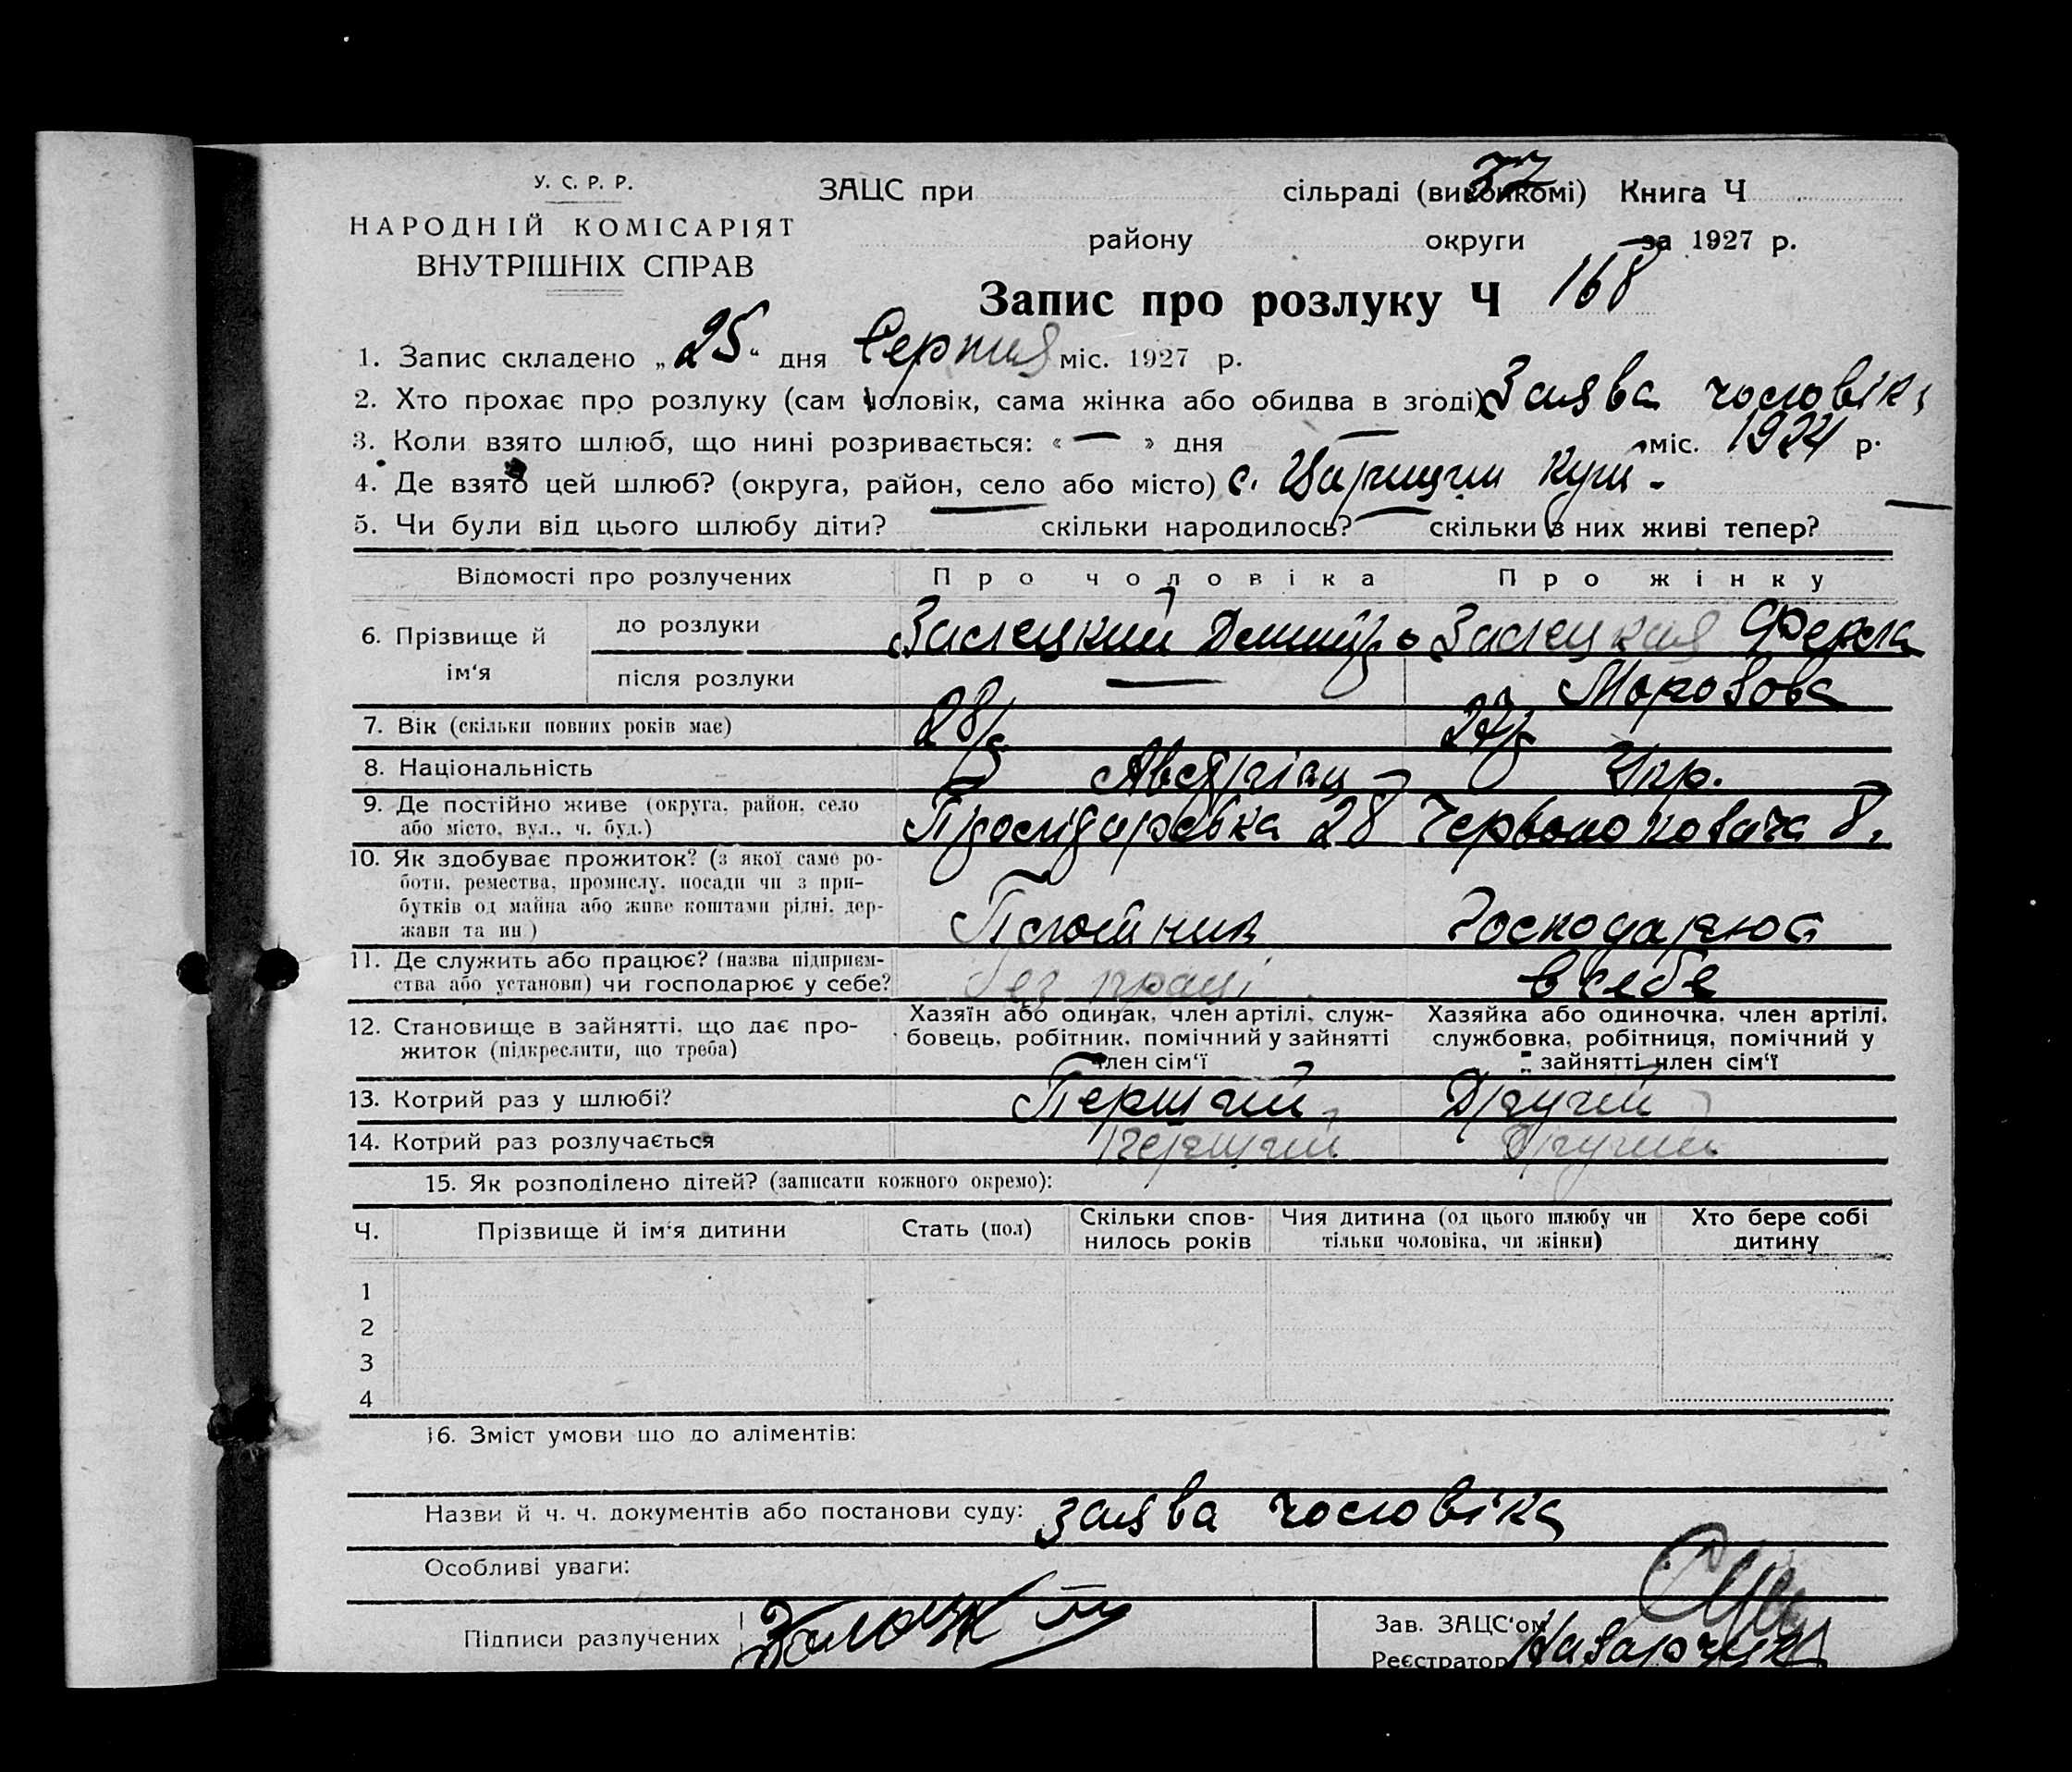 У. С. Р. Р.
НАРОДНІЙ КОМІСАРІЯТ
ВНУТРІШНІХ СПРАВ
ЗАЦС при сільраді (виконкомі) Книга Ч
району округи за 1927 р.
Запис про розлуку Ч 168
1. Запис складено „25“ дня Серпня міс. 1927 р.
2. Хто прохає про розлуку (сам чоловік, сама жінка або обидва в згоді) Заява чоловіка
3. Коли взято шлюб, що нині розривається: « — » дня — міс. 1924 р.
4. Де взято цей шлюб? (округа, район, село або місто) с. Царицин Кут -
5. Чи були від цього шлюбу діти? — скільки народилось? — скільки з них живі тепер? —
Відомості про розлучених Про чоловіка Про жінку
6. Прізвище й ім‘я до розлуки Залецкий Дмитро Залецкая Фекла
після розлуки — Морозова
7. Вік (скільки повних років має) 28 27
8. Національність Австріец Укр.
9. Де постійно живе (округа, район, село або місто, вул., ч. буд.) 28 Червоно Козача 8.
10. Як здобуває прожиток? (з якої саме роботи, ремества, промислу, посади чи з прибутків од майна або живе коштами рідні, держави та ин.) Плотник Господарює
11. Де служить або працює? (назва підприємства або установи) чи господарює у себе? без праці в себе
12. Становище в зайнятті, що дає прожиток (підкреслити, що треба) Хазяїн або одинак, член артілі, службовець, робітник, помічний у зайнятті член сім‘ї Хазяйка або одиночка, член артілі, службовка, робітниця, помічний у зайнятті член сім‘ї
13. Котрий раз у шлюбі? Перший Другий
14. Котрий раз розлучається Перший Другий
15. Як розподілено дітей? (записати кожного окремо):
Ч. Прізвище й ім‘я дитини Стать (пол) Скільки сповнилось років Чия дитина (од цього шлюбу чи тільки чоловіка, чи жінки) Хто бере собі дитину
1
2
3
4
16. Зміст умови що до аліментів:
Назви й ч. ч. документів або постанови суду: заява чоловіка
Особливі уваги:
Підписи разлучених
Зав. ЗАЦС‘ом
Реєстратор Назарчук